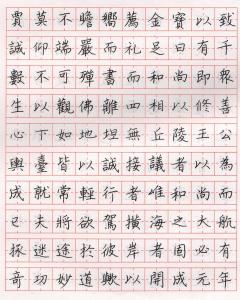 賈莫不瞻嚮薦金寶以致
誠仰端嚴而礼足日有千
數不可殫書而和尚即眾
生以觀佛離四相以修善
心下如地坦無丘陵王公
輿臺皆以誠接議者以為
成就常輕行者唯和尚而
已夫將欲駕橫海之大航
拯迷途於彼岸者固必有
奇功妙道歟以開成元年